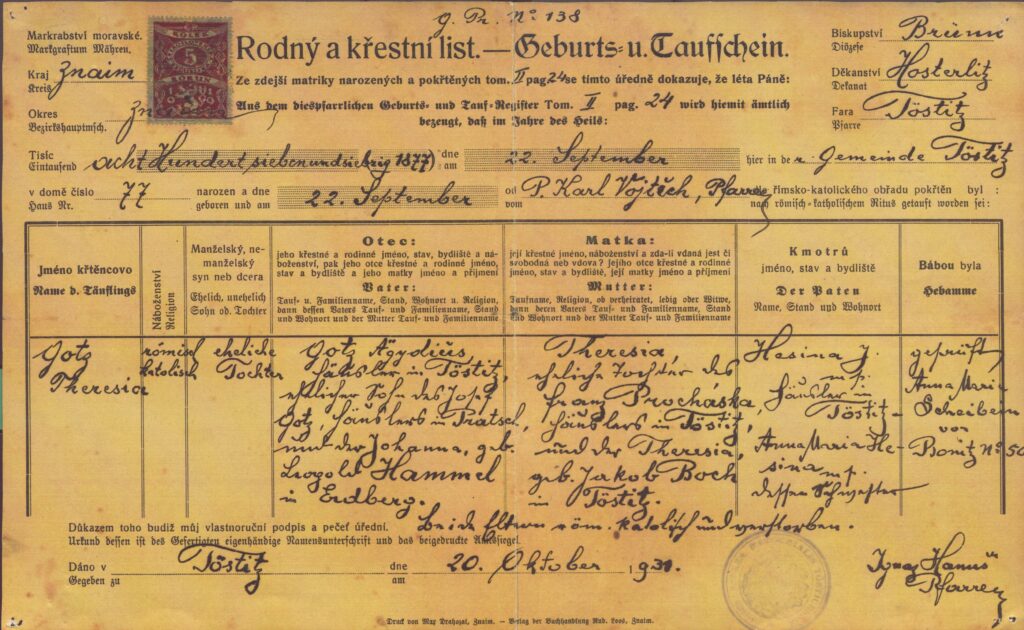 g. Pr. Nº 138
Markrabství moravské.
Markgrafium Mähren.
Kraj
Kreis
Znaim
Okres
Bezirkshauptmsch.
KOLEK
5
KORUN
1919
Rodný a křestní list. — Geburts- u. Taufschein.
Ze zdejší matriky narozených a pokřtěných tom. II pag 24 se tímto úředně dokazuje, že léta Páně:
Aus dem diespfarrlichen Geburts- und Tauf-Register Tom. II pag. 24 wird hiemit ämtlich
bezeugt, daß im Jahre des Heils:
Biskupství
Diözese
Brünn
Děkanství
Dekanat
Hosterlitz
Fara
Pfarre
Töstitz
Tisíc
Eintausend
acht Hundert siebenundsiebzig 1877)
dne
am
22. September
hier in de r Gemeinde Töstitz
v domě číslo
Haus Nr.
77
narozen a dne
geboren und am
22. September
od
vom
P. Karl Vojtěch, Pfarrer
římsko-katolického obřadu pokřtěn byl :
nach römisch-katholischem Ritus getauft worden sei:
Jméno křtěncovo
Name d. Täuflings
Náboženství
Religion
Manželský, ne-
manželský
syn neb dcera
Ehelich, unehelich
Sohn od. Tochter
Otec:
jeho křestné a rodinné jméno, stav, bydliště a ná-
boženství, pak jeho otce křestné a rodinné jméno,
stav a bydliště a jeho matky jméno a příjmení
Vater:
Tauf- u. Familienname, Stand, Wohnort u. Religion,
dann dessen Vaters Tauf- und Familienname, Stand
und Wohnort und der Mutter Tauf- und Familienname
Matka:
její křestné jméno, náboženství a zda-li vdaná jest či
svobodná neb vdova? jejího otce křestné a rodinné
jméno, stav a bydliště, její matky jméno a příjmení
Mutter:
Taufname, Religion, ob verheiratet, ledig oder Witwe,
dann deren Vaters Tauf- und Familienname, Stand
und Wohnort und der Mutter Tauf- und Familienname
Kmotrů
jméno, stav a bydliště
Der Paten
Name, Stand und Wohnort
Bábou byla
Hebamme
Gotz
Theresia
römisch
katolisch
eheliche
Tochter
Gotz Ägydius,
Häusler in Töstitz,
ehelicher Sohn des Josef
Gotz, Häuslers in Pratsch,
und der Johanna, geb.
Leopold Hammel
in Erdberg.
Theresia,
eheliche Tochter des
Franz Procháska,
Häuslers in Töstitz,
und der Theresia,
geb. Jakob Boch
in Töstitz.
Hesina J.
m.p.
Häusler in
Töstitz
Anna Maria He-
sina m.p.
dessen Schwester
geprüft
Anna Maria
Scheibein
von
Bonitz Nº 50
Beide Eltern röm. katolisch und verstorben.
Důkazem toho budiž můj vlastnoruční podpis a pečeť úřední.
Urkund dessen ist des Gefertigten eigenhändige Namensunterschrift und das beigedruckte Amtssiegel.
Dáno v
Gegeben zu
Töstitz
dne
am
20. Oktober 1931.
Ignaz Hanuš
Pfarrer
Druck von Max Drahozal, Znaim. — Verlag der Buchhandlung Rud. Loos, Znaim.